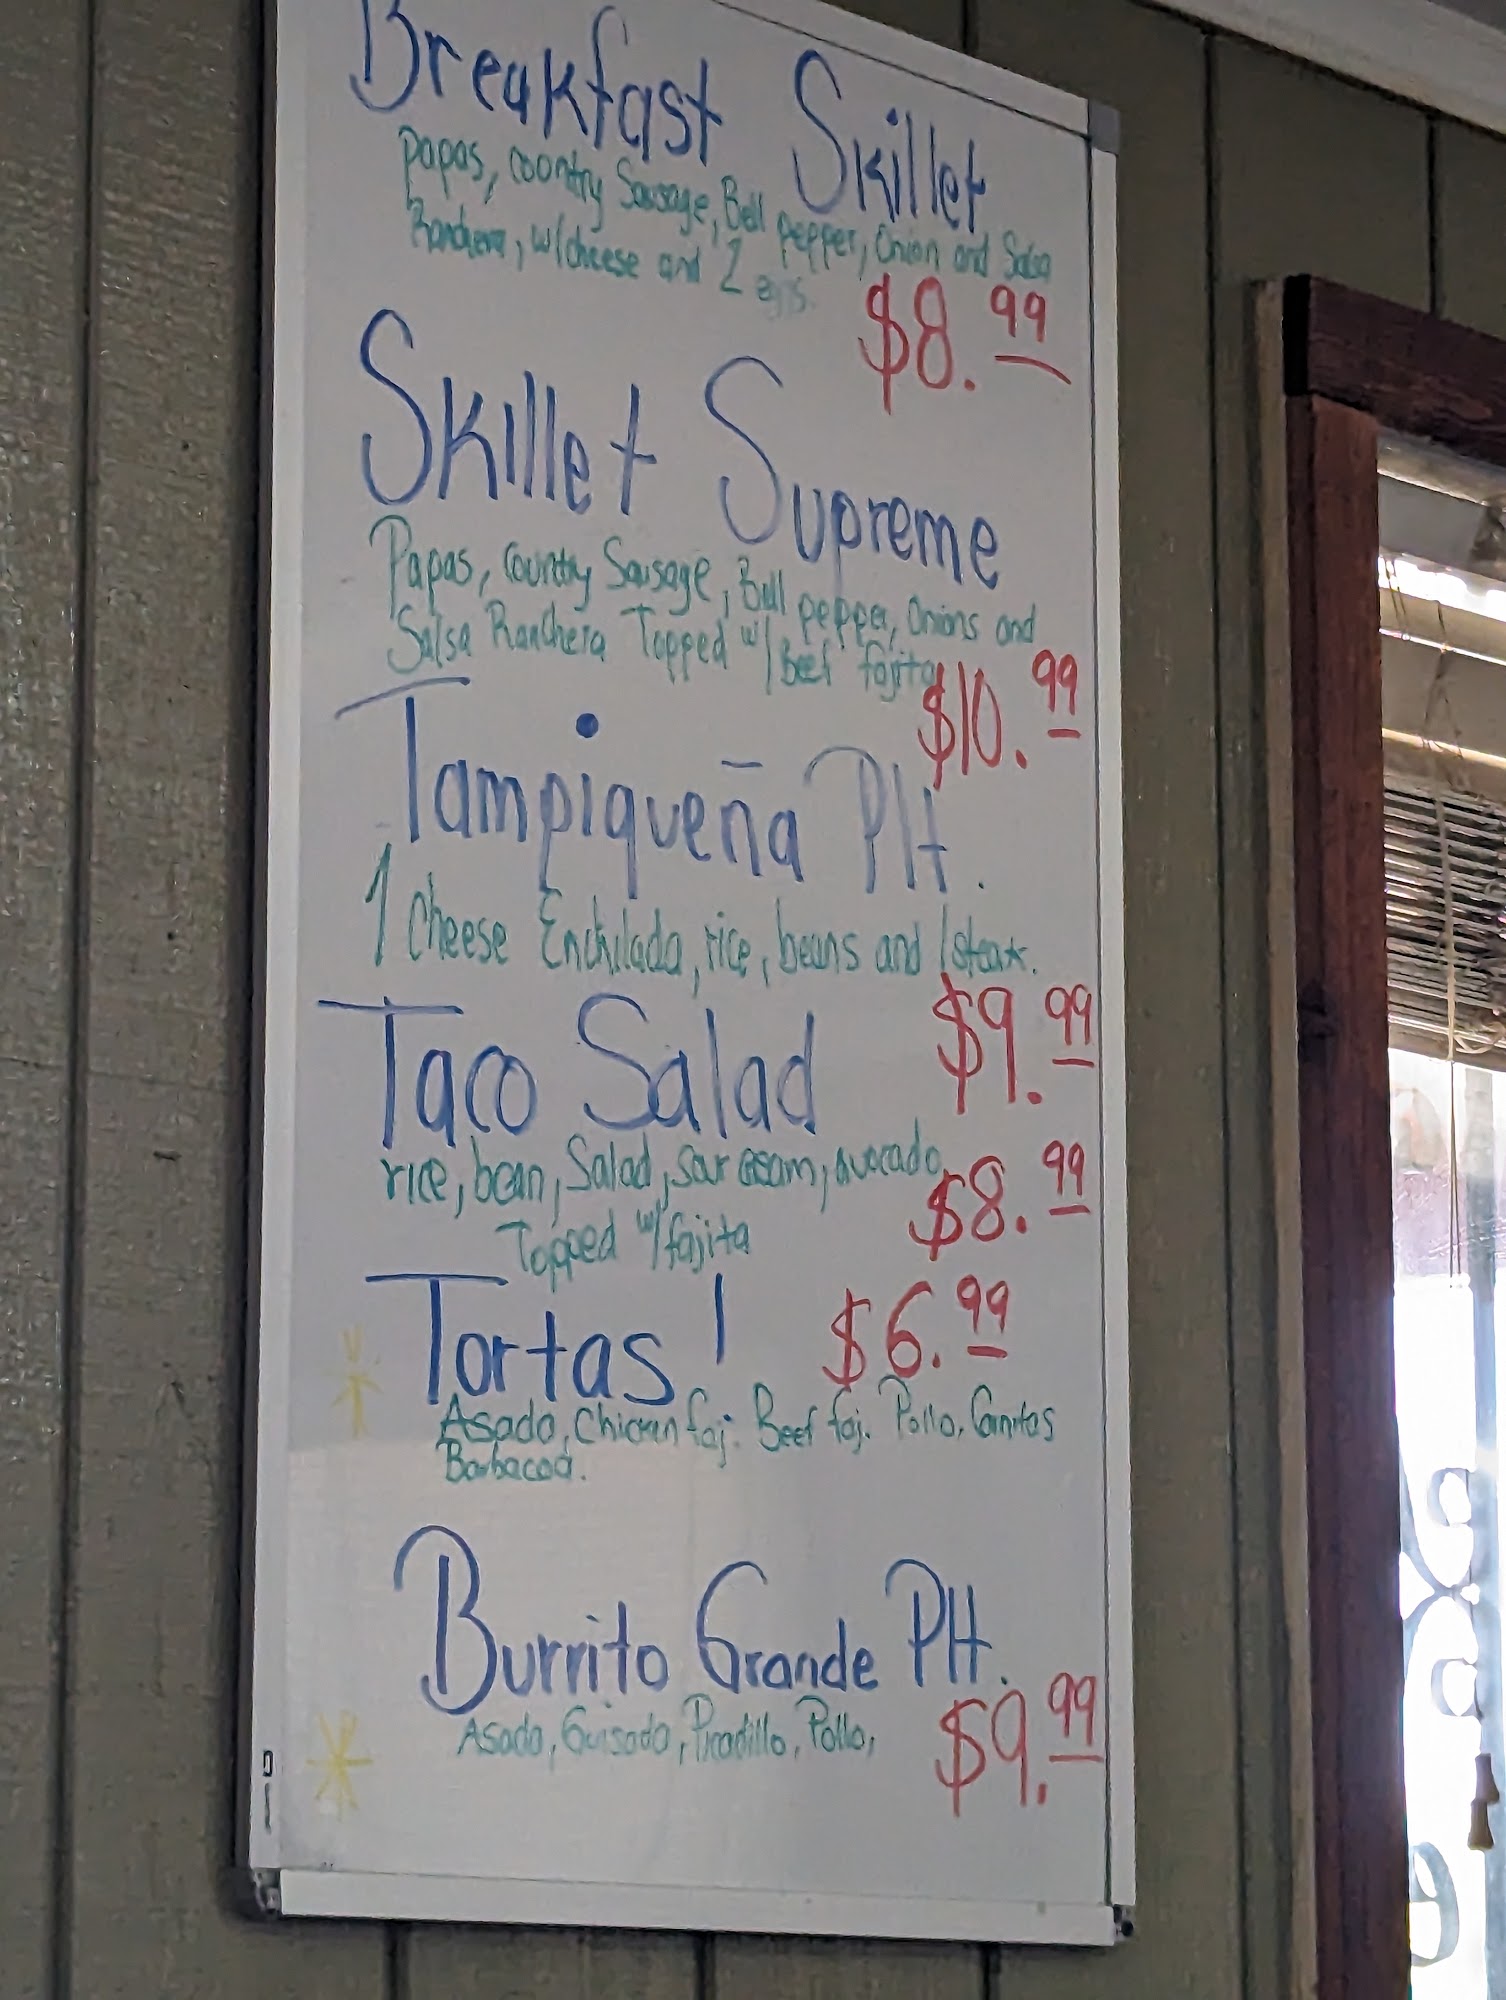 Breakfast Skillet
papas, country Sausage, Bell pepper, Onion and Salsa
Ranchera, w/cheese and 2 eggs.
$8.99
Skillet Supreme
Papas, country Sausage, Bell pepper, Onions and
Salsa Ranchera Topped w/ Beef fajita
$10.99
Tampiqueña Plt.
1 cheese Enchilada, rice, beans and 1 steak.
$9.99
Taco Salad
rice, bean, Salad, sour cream, avocado
Topped w/ fajita
$8.99
Tortas! $6.99
Asado, Chicken faj. Beef faj. Pollo, Carnitas
Barbacoa.
Burrito Grande Plt.
Asado, Guisado, Picadillo, Pollo,
$9.99